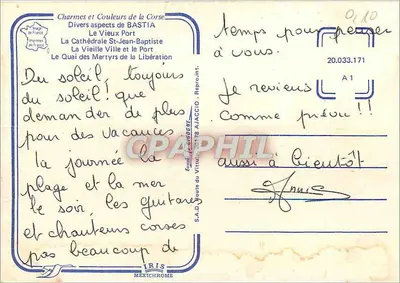 Charmes et Couleurs de la Corse
Divers aspects de BASTIA
Le Vieux Port
La Cathédrale St-Jean-Baptiste
La Vieille Ville et le Port
Le Quai des Martyrs de la Libération
Du soleil ! toujours
du soleil ! que
demander de plus
pour des vacances
la journée la
plage et la mer
le soir, les guitares
et chanteurs corses
pas beaucoup de
temps pour penser
à vous.
Je reviens
comme prévu !!
aussi à bientôt
Annie
0,10
20.033.171
A 1
CPAPHIL
IRIS
MEXICHROME